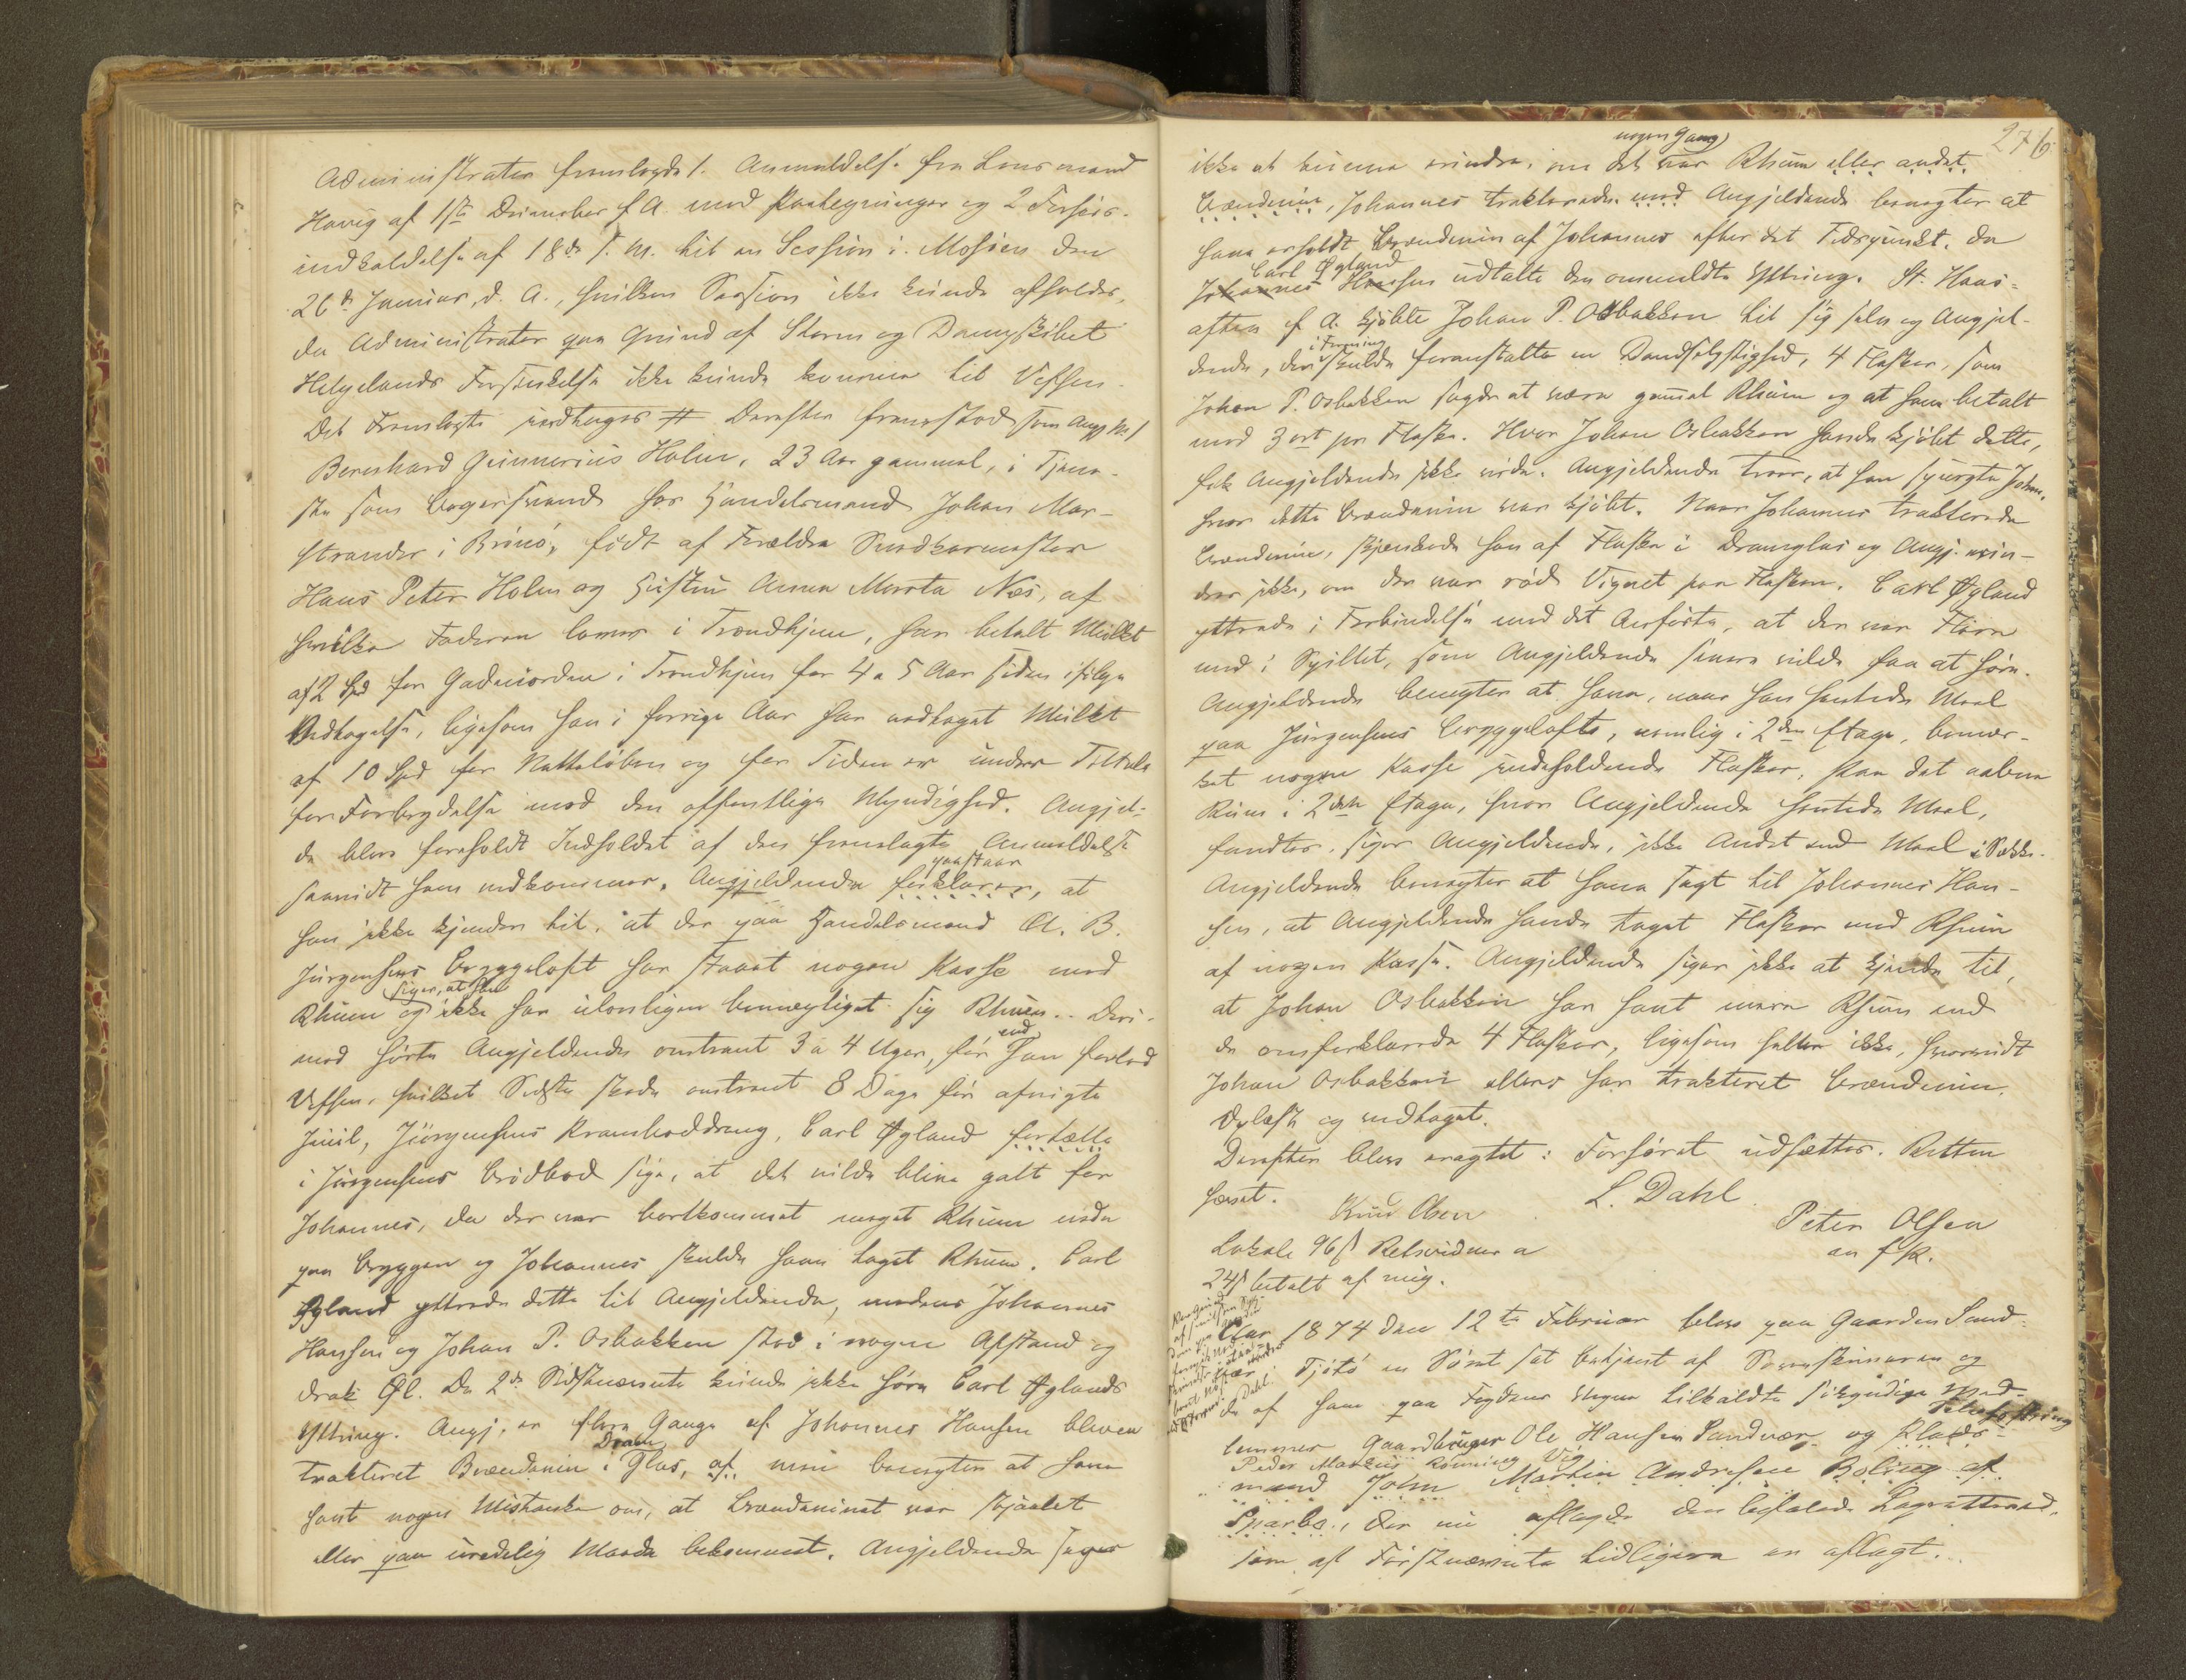 Administrator fremlagde 1. Anmeldelse fra Lensmand
Havig af 1ste December f. A. med Paategninger og 2 Forhørs-
indkaldelse af 18de f. M. til en Session i Mosjøen den
26de Januar d. A., hvilken Session ikke kunde afholdes,
da Administrator paa Grund af Storm og Dampskibet
Helgelands Forsinkelse ikke kunde komme til Vefsen.
Det Fremlagte indtages # Derefter fremstod som Angj. No 1
Bernhard Gunnerius Holm, 23 Aar gammel, i Tjene-
ste som Bagersvend hos Handelsmand Johan Mar-
strander i Brønø, født af Forældre Snedkermester
Hans Peter Holm og Hustru Anna Marta Næs, af
hvilke Faderen lever i Trondhjem, har betalt Mulkt
af 2 Spd for Gadeuorden i Trondhjem for 4 a 5 Aar siden ifølge
Vedtagelse, ligesom han i forrige Aar har vedtaget Mulkt
af 10 Spd for Natteløben og for Tiden er under Tiltale
for Forbrydelse mod den offentlige Myndighed. Angjel-
de blev foreholdt Indholdet af den fremlagte Anmeldelse
paastaar
saavidt ham vedkommer. Angjeldende forklarer, at
han ikke kjender til, at der paa Handelsmand A. B.
Jürgensens Bryggeloft har staaet nogen Kasse med
siger, at han
Rhum og ikke har ulovligen bemægtiget sig Rhum. Deri-
end
mod hørte Angjeldende omtrent 3 a 4 Uger, før han forlod
Vefsen, hvilket Sidste skede omtrent 8 Dage før afvigte
Juul, Jürgensens Kramboddreng, Carl Øyland fortælle
i Jürgensens Brødbod sige, at det vilde blive galt for
Johannes, da der var bortkommet noget Rhum nede
paa Bryggen og Johannes skulde have taget Rhum. Carl
Øyland yttrede dette til Angjeldende, medens Johannes
Hansen og Johan P. Osbakken stod i nogen Afstand og
drak Øl. De 2de Sidstnævnte kunde ikke høre Carl Øylands
Yttring. Angj. er flere Gange af Johannes Hansen bleven
Dram
trakteret Brændeviin i Glas, af men benegter at have
havt nogen Mistanke om, at Brændevinet var stjaalet
eller paa uredelig Maade bekommet. Angjeldende siger
276
nogen Gang
ikke at kunne erindre, om det var Rhum eller andet
Brændeviin, Johannes trakterede med Angjeldende benegter at
have erholdt Brændeviin af Johannes efter det Tidspunkt, da
Carl Øyland
Johannes Hansen udtalte den ommeldte Yttring. St. Hans-
aften f. A. kjøbte Johan P. Osbakken til sig selv og Angjel-
i Forening
dende, der skulde foranstalte en Dandselystighed, 4 Flasker, som
Johan P. Osbakken sagde at være gammel Rhum og at have betalt
med 3 ort pr Flaske. Hvor Johan Osbakken havde kjøbt dette,
fik Angjeldende ikke vide. Angjeldende troer, at han spurgte Johan,
hvor dette Brændeviin var kjøbt. Naar Johannes trakterede
Brændeviin, skjænkede han af Flaske i Dramglas og Angj. erin-
drer ikke, om der var rød Vignet paa Flasken. Carl Øyland
yttrede i Forbindelse med det Anførte, at der var Flere
med i Spillet, som Angjeldende senere vilde faa at høre.
Angjeldende benegter at have, naar han hentede Meel
paa Jürgensens Bryggeloft, nemlig i 2den Etage, bemær-
ket nogen Kasse indeholdende Flasker. Paa det aabne
Rum i 2den Etage, hvor Angjeldende hentede Meel,
fandtes, siger Angjeldende, ikke Andet end Meel i Sække.
Angjeldende benegter at have sagt til Johannes Han-
sen, at Angjeldende havde taget Flasker med Rhum
af nogen Kasse. Angjeldende siger ikke at kjende til,
at Johan Osbakken har havt mere Rhum end
de omforklarede 4 Flasker, ligesom heller ikke, hvorvidt
Johan Osbakken ellers har trakteret Brændeviin.
Oplæst og vedtaget.
Derefter blev eragtet: Forhøret udsættes. Retten
hævet.
L. Dahl
Knud Olsen
Peter Olsen
m. f. P.
Lokale 96 s Retsvidner a
24 s betalt af mig.
Aar 1874 den 12te Februar blev paa Gaarden Sand-
nær i Tjøtø en Søret sat betjent af Sorenskriveren og
de af ham paa Fogdens Vegne tilkaldte søkyndige Med-
lemmer Gaardbruger Ole Hansen Sandvær og Plads-
Peder Markus Rønning Vig
mand John Martin Andresen Boling af
Sparbo, der nu aflagde den befalede Lagrettesed,
som af Førstnævnte tidligere er aflagt.